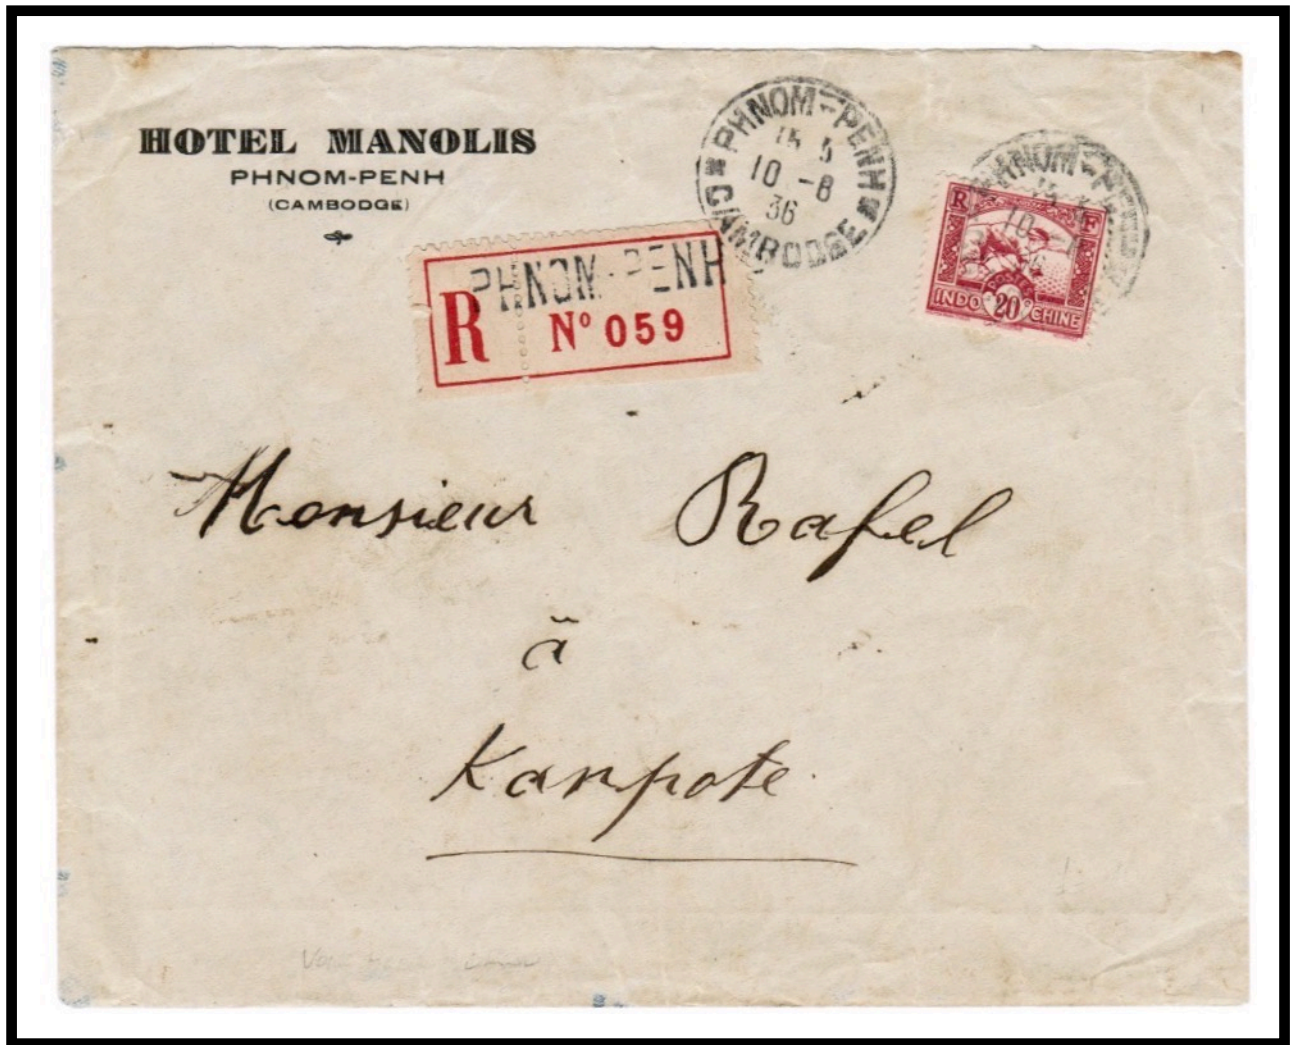 HOTEL MANOLIS
PHNOM-PENH
(CAMBODGE)
PHNOM-PENH
10 -8
36
CAMBODGE
PHNOM-PENH
10
R F
POSTES
INDO 20 CHINE
PHNOM-PENH
R Nº 059
Monsieur Rafel
à
Kanpote